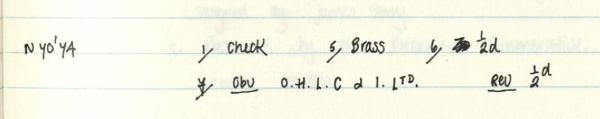 N YO'YA 1/ Check 5/ Brass 6/ ½d
7/ Obv O.H.L.C d I. LTD. Rev ½d